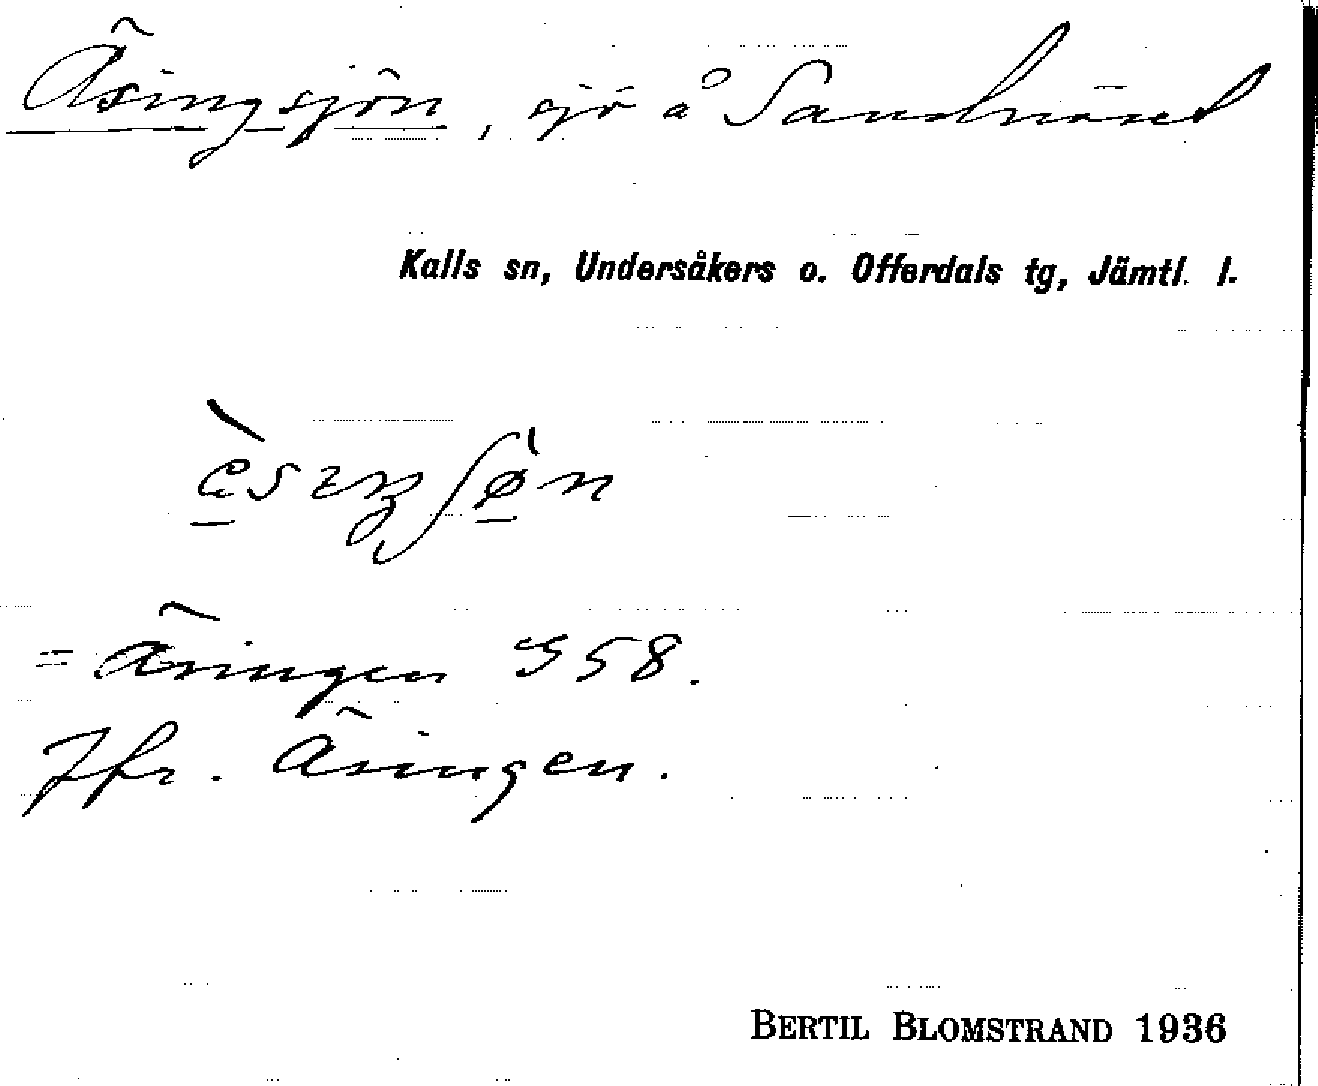 Äsingsjön, sjö å Sandnäset
Kalls sn, Undersåkers o. Offerdals tg, Jämtl. l.
= Äsingen G 58.
Jfr. Äsingen.
BERTIL BLOMSTRAND 1936